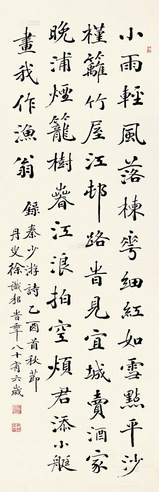 小雨輕風落楝華細紅如雪點平沙
槿籬竹屋江邨路旹見宜城賣酒家
晚浦煙籠樹萅江浪拍空煩君添小艇
畫我作漁翁 錄秦少游詩乙酉首秋節
丹叟徐識耜旹年八十有六歲